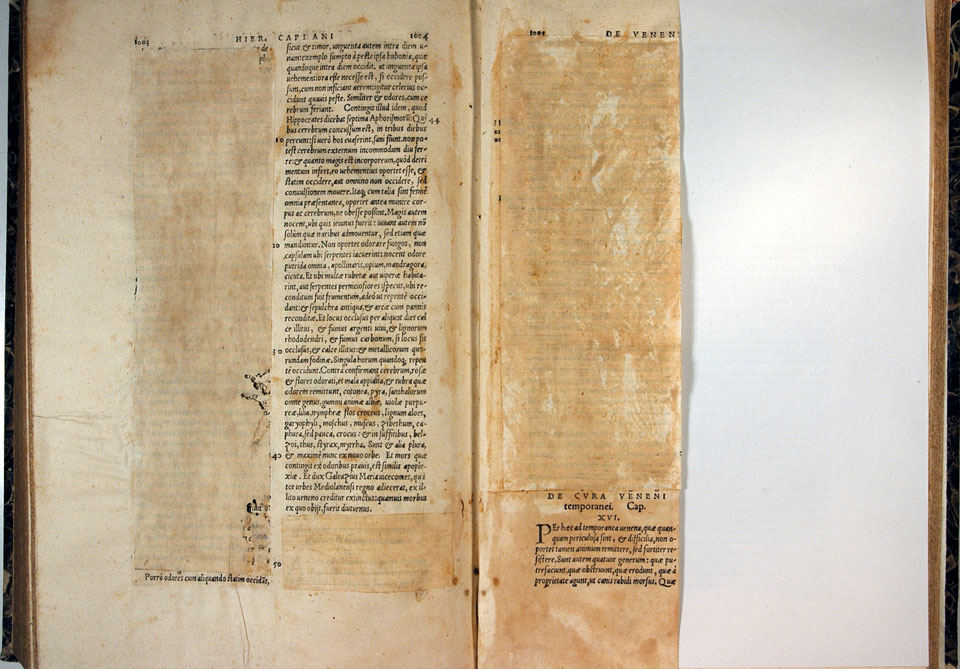 1003
HIER. CAPIANI
1004
de
pl
Porrò odores cum aliquando statim occidāt,
sicut & timor, unguenta autem intra diem u-
nam: exemplo sumpto à peste ipsa bubonia, quæ
quandoque intra diem occidit. at unguenta ipsa
uehementiora esse necesse est, si occidere pos-
sunt, cum non inficiant aerem: igitur celerius oc-
cidunt quauis peste. Similiter & odores, cum ce
rebrum feriant. Contingit illud idem, quod
Hippocrates dicebat septima Aphorismorū: Qui 44
bus cerebrum concussum est, in tribus diebus
10 pereunt: si uerò hos euaserint, sani fiunt. non po-
test cerebrum externum incommodum diu fer-
re: & quanto magis est incorporeum, quòd detri
mentum infert, eo uehementius oportet esse, &
statim occidere, aut omnino non occidere, sed
conuulsionem mouere. Itaq; cum talia sint fermè
omnia præsentanea, oportet antea munire cor-
pus ac cerebrum, ne obesse possint. Magis autem
nocent, ubi quis ieiunus fuerit: iuuant autem nō
solùm quæ naribus admouentur, sed etiam quæ
20 manduntur. Non oportet odorare fungos, non
capsidam ubi serpentes iacuerint: nocent odore
putrida omnia, apollinaris, opium, mandragora,
cicuta. Et ubi multæ rubetæ aut uiperæ habita-
rint, aut serpentes perniciosiores: specus, ubi re-
conditum fuit frumentum, adeò ut repentè occi-
dant: & sepulchra antiqua, & arcæ cum pannis
reconditæ. Et locus occlusus per aliquot dies cal
ce illitus, & fumus argenti uiui, & lignorum
rhododendri, & fumus carbonum, si locus sit
30 occlusus, & calce illitus: & metallicorum quo-
rundam fodinæ. Singula horum quandoq; repen
tè occidunt. Contrà confirmant cerebrum, rosæ
& flores odorati, et mala appiana, & rubra quæ
odorem remittunt, cotonea, pyra, santhalorum
omne genus, gummi animæ albæ, uiolæ purpu-
reæ, lilia, nympheæ flos croceus, lignum aloes,
garyophyli, moschus, muscus, zibethum, ca-
phura, sed pauca, crocus: & in suffitibus, bel-
zoi, thus, styrax, myrrha. Sunt & alia plura,
40 & maximè nunc ex nouo orbe. Et mors quæ
contingit ex odoribus prauis, est similis apople-
xiæ. Et dux Galeazius Maria uicecomes, qui
tot urbes Mediolanensi regno adiecerat, ex il-
lito ueneno creditur extinctus: quamuis morbus
ex quo obijt, fuerit diuturnus.
50
1005
DE VENEN
DE CVRA VENENI
temporanei. Cap.
XVI.
PEr hæc ad temporanea uenena, quæ quan-
quam periculosa sint, & difficilia, non o-
portet tamen animum remittere, sed fortiter re-
sistere. Sunt autem quatuor generum: quæ pu-
trefaciunt, quæ obstruunt, quæ erodunt, quæ à
proprietate agunt, ut canis rabidi morsus. Quæ